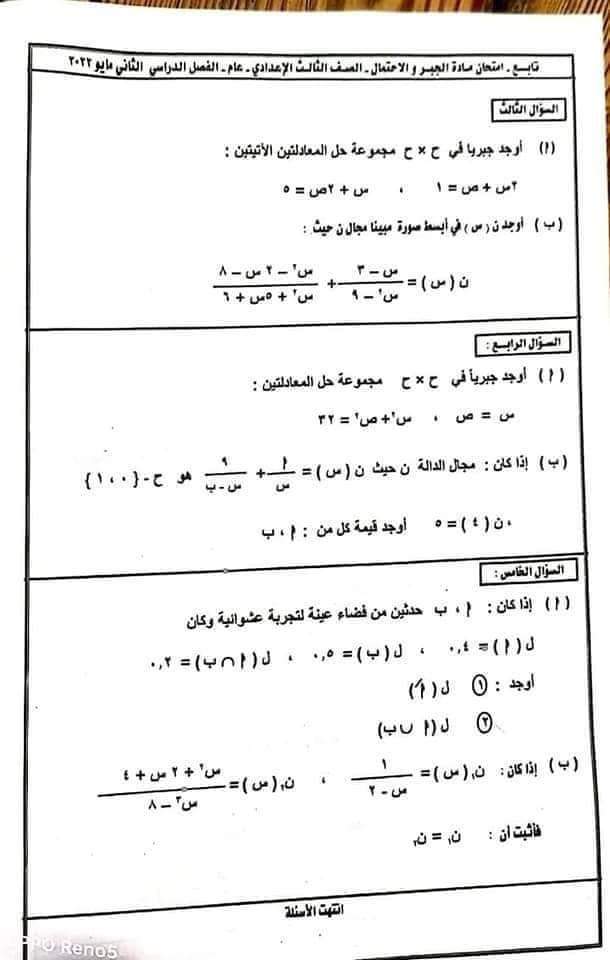 تابع - امتحان مادة الجبر و الاحتمال - الصف الثالث الإعدادي - عام - الفصل الدراسي الثاني مايو ٢٠٢٢
السؤال الثالث
(أ) أوجد جبريا في ح × ح مجموعة حل المعادلتين الآتيتين :
٢س + ص = ١ ، س + ٢ص = ٥
(ب) أوجد ن (س) في أبسط صورة مبينا مجال ن حيث :
ن (س) = (س – ٣)/(س² – ٩) + (س² – ٢س – ٨)/(س² + ٥س + ٦)
السؤال الرابع :
(أ) أوجد جبرياً في ح × ح مجموعة حل المعادلتين :
س = ص ، س² + ص² = ٣٢
(ب) إذا كان : مجال الدالة ن حيث ن (س) = أ/س + ٩/(س - ب) هو ح - {٠ ، ١}
، ن (٤) = ٥ أوجد قيمة كل من : أ ، ب
السؤال الخامس :
(أ) إذا كان : أ ، ب حدثين من فضاء عينة لتجربة عشوائية وكان
ل (أ) = ٠,٤ ، ل (ب) = ٠,٥ ، ل (أ ∩ ب) = ٠,٢
أوجد : ① ل (أ′)
② ل (أ ∪ ب)
(ب) إذا كان : ن₁ (س) = ١/(س - ٢) ، ن₂ (س) = (س² + ٢س + ٤)/(س³ – ٨)
فأثبت أن : ن₁ = ن₂
انتهت الأسئلة
PPO Reno5